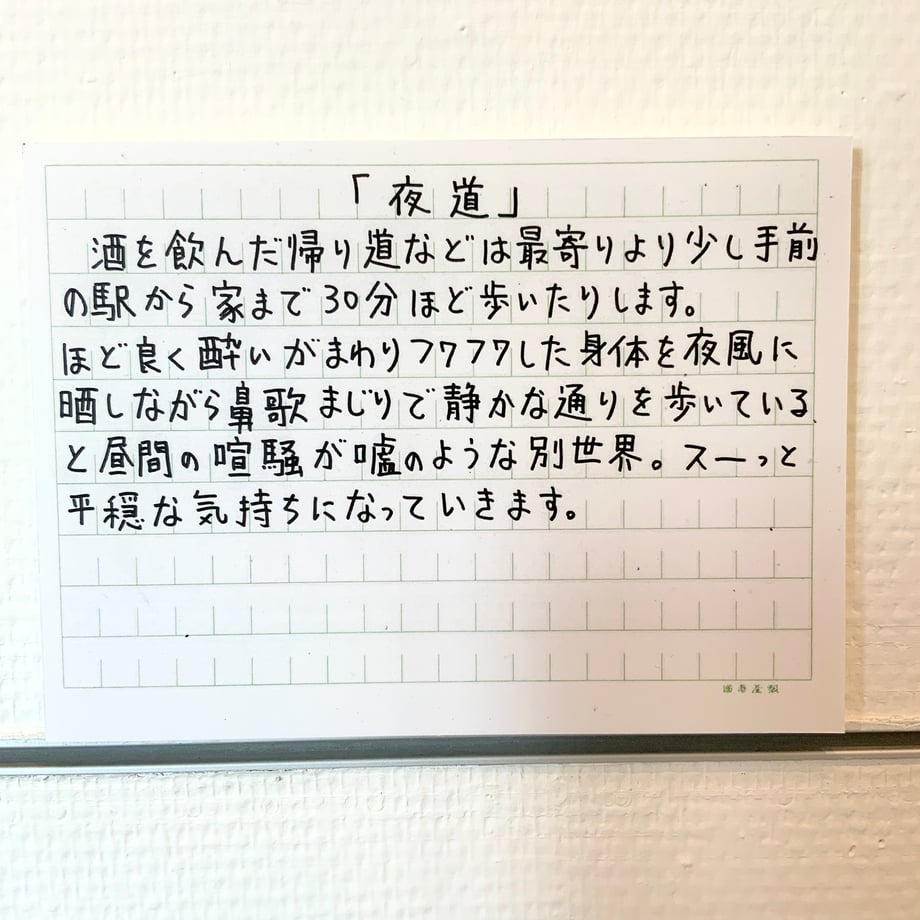 「夜道」
酒を飲んだ帰り道などは最寄りより少し手前
の駅から家まで30分ほど歩いたりします。
ほど良く酔いがまわりフワフワした身体を夜風に
晒しながら鼻歌まじりで静かな通りを歩いている
と昼間の喧騒が嘘のような別世界。スーっと
平穏な気持ちになっていきます。